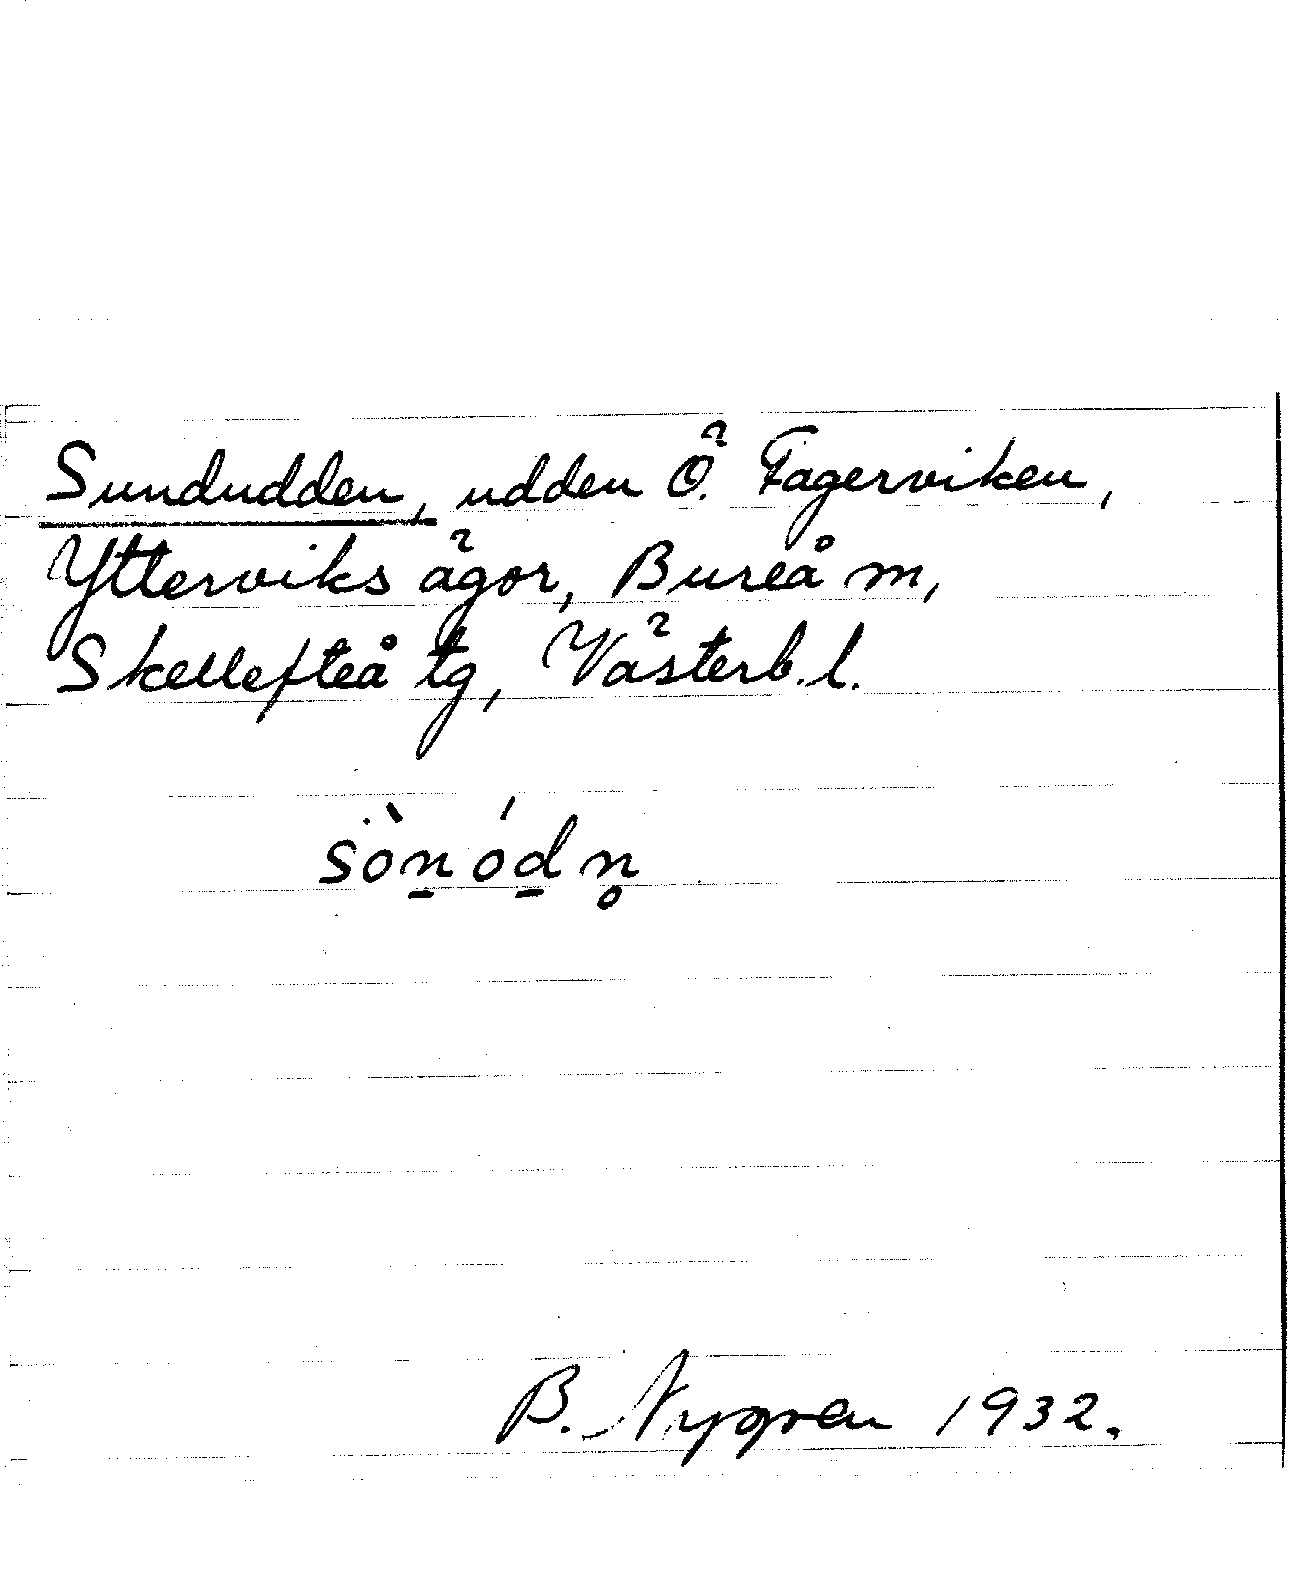 Sundudden, udden Ö. Fagerviken,
Ytterviks ägor, Bureå m,
Skellefteå tg, Västerb. l.
sö̀n̲ ód̲n̥
B. Nygren 1932.